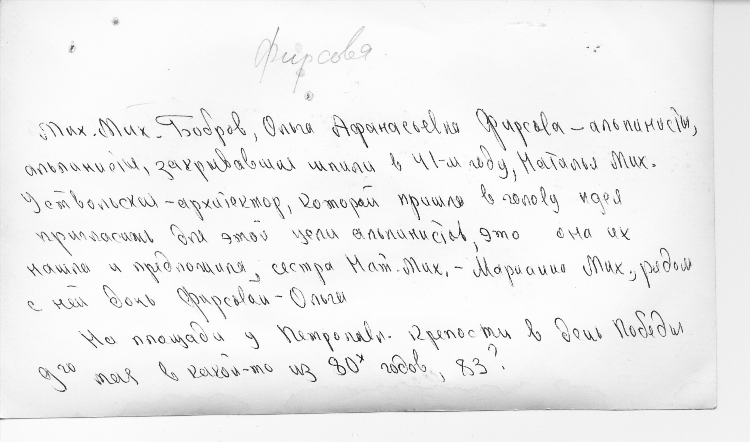 Фирсова
Мих. Мих. Бобров, Ольга Афанасьевна Фирсова – альпинисты,
альпинисты, закрывавшие шпили в 41-м году, Наталья Мих.
Уствольская – архитектор, которой пришла в голову идея
пригласить для этой цели альпинистов, это она их
нашла и предложила, сестра Нат. Мих. – Марианна Мих., рядом
с ней дочь Фирсовой – Ольга
На площади у Петропавл. крепости в день Победы
9го мая в какой-то из 80х годов, 83?